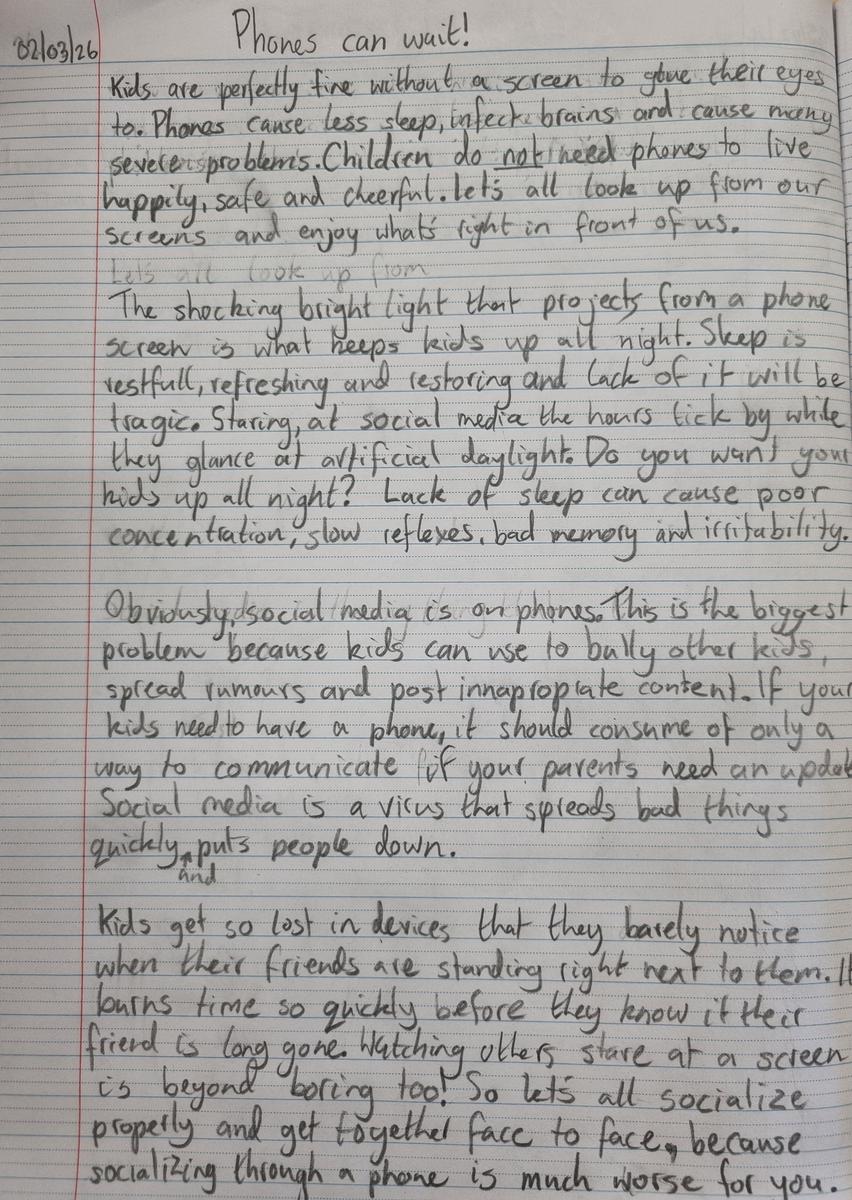 02/03/26
Phones can wait!
Kids are perfectly fine without a screen to glue their eyes
to. Phones cause less sleep, infect brains and cause many
severe problems. Children do not need phones to live
happily, safe and cheerful. Let's all look up from our
screens and enjoy what's right in front of us.
Lets all look up from
The shocking bright light that projects from a phone
screen is what keeps kids up all night. Sleep is
restfull, refreshing and restoring and lack of it will be
tragic. Staring, at social media the hours tick by while
they glance at artificial daylight. Do you want your
kids up all night? Lack of sleep can cause poor
concentration, slow reflexes, bad memory and irritability.
Obviously, social media is on phones. This is the biggest
problem because kids can use to bully other kids,
spread rumours and post innapropiate content. If your
kids need to have a phone, it should consume of only a
way to communicate if your parents need an updat
Social media is a virus that spreads bad things
quickly, puts people down.
and
Kids get so lost in devices that they barely notice
when their friends are standing right next to them. It
burns time so quickly before they know it their
friend is long gone. Watching others stare at a screen
is beyond boring too! So let's all socialize
properly and get together face to face, because
socializing through a phone is much worse for you.